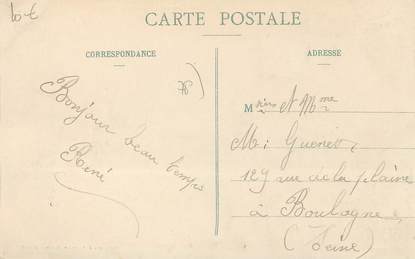 10-7
CARTE POSTALE
CORRESPONDANCE
ADRESSE
78
Bonjour beau temps
René
Msieur et Mme
Mi Guenée,
129 rue de la plaine
à Boulogne
(Seine)